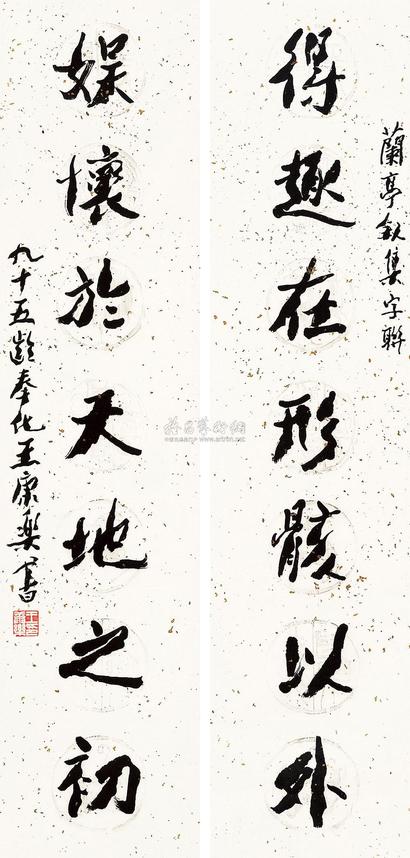 蘭亭敘集字聯
得趣在形骸以外
娛懷於天地之初
九十五齡奉化王康樂書